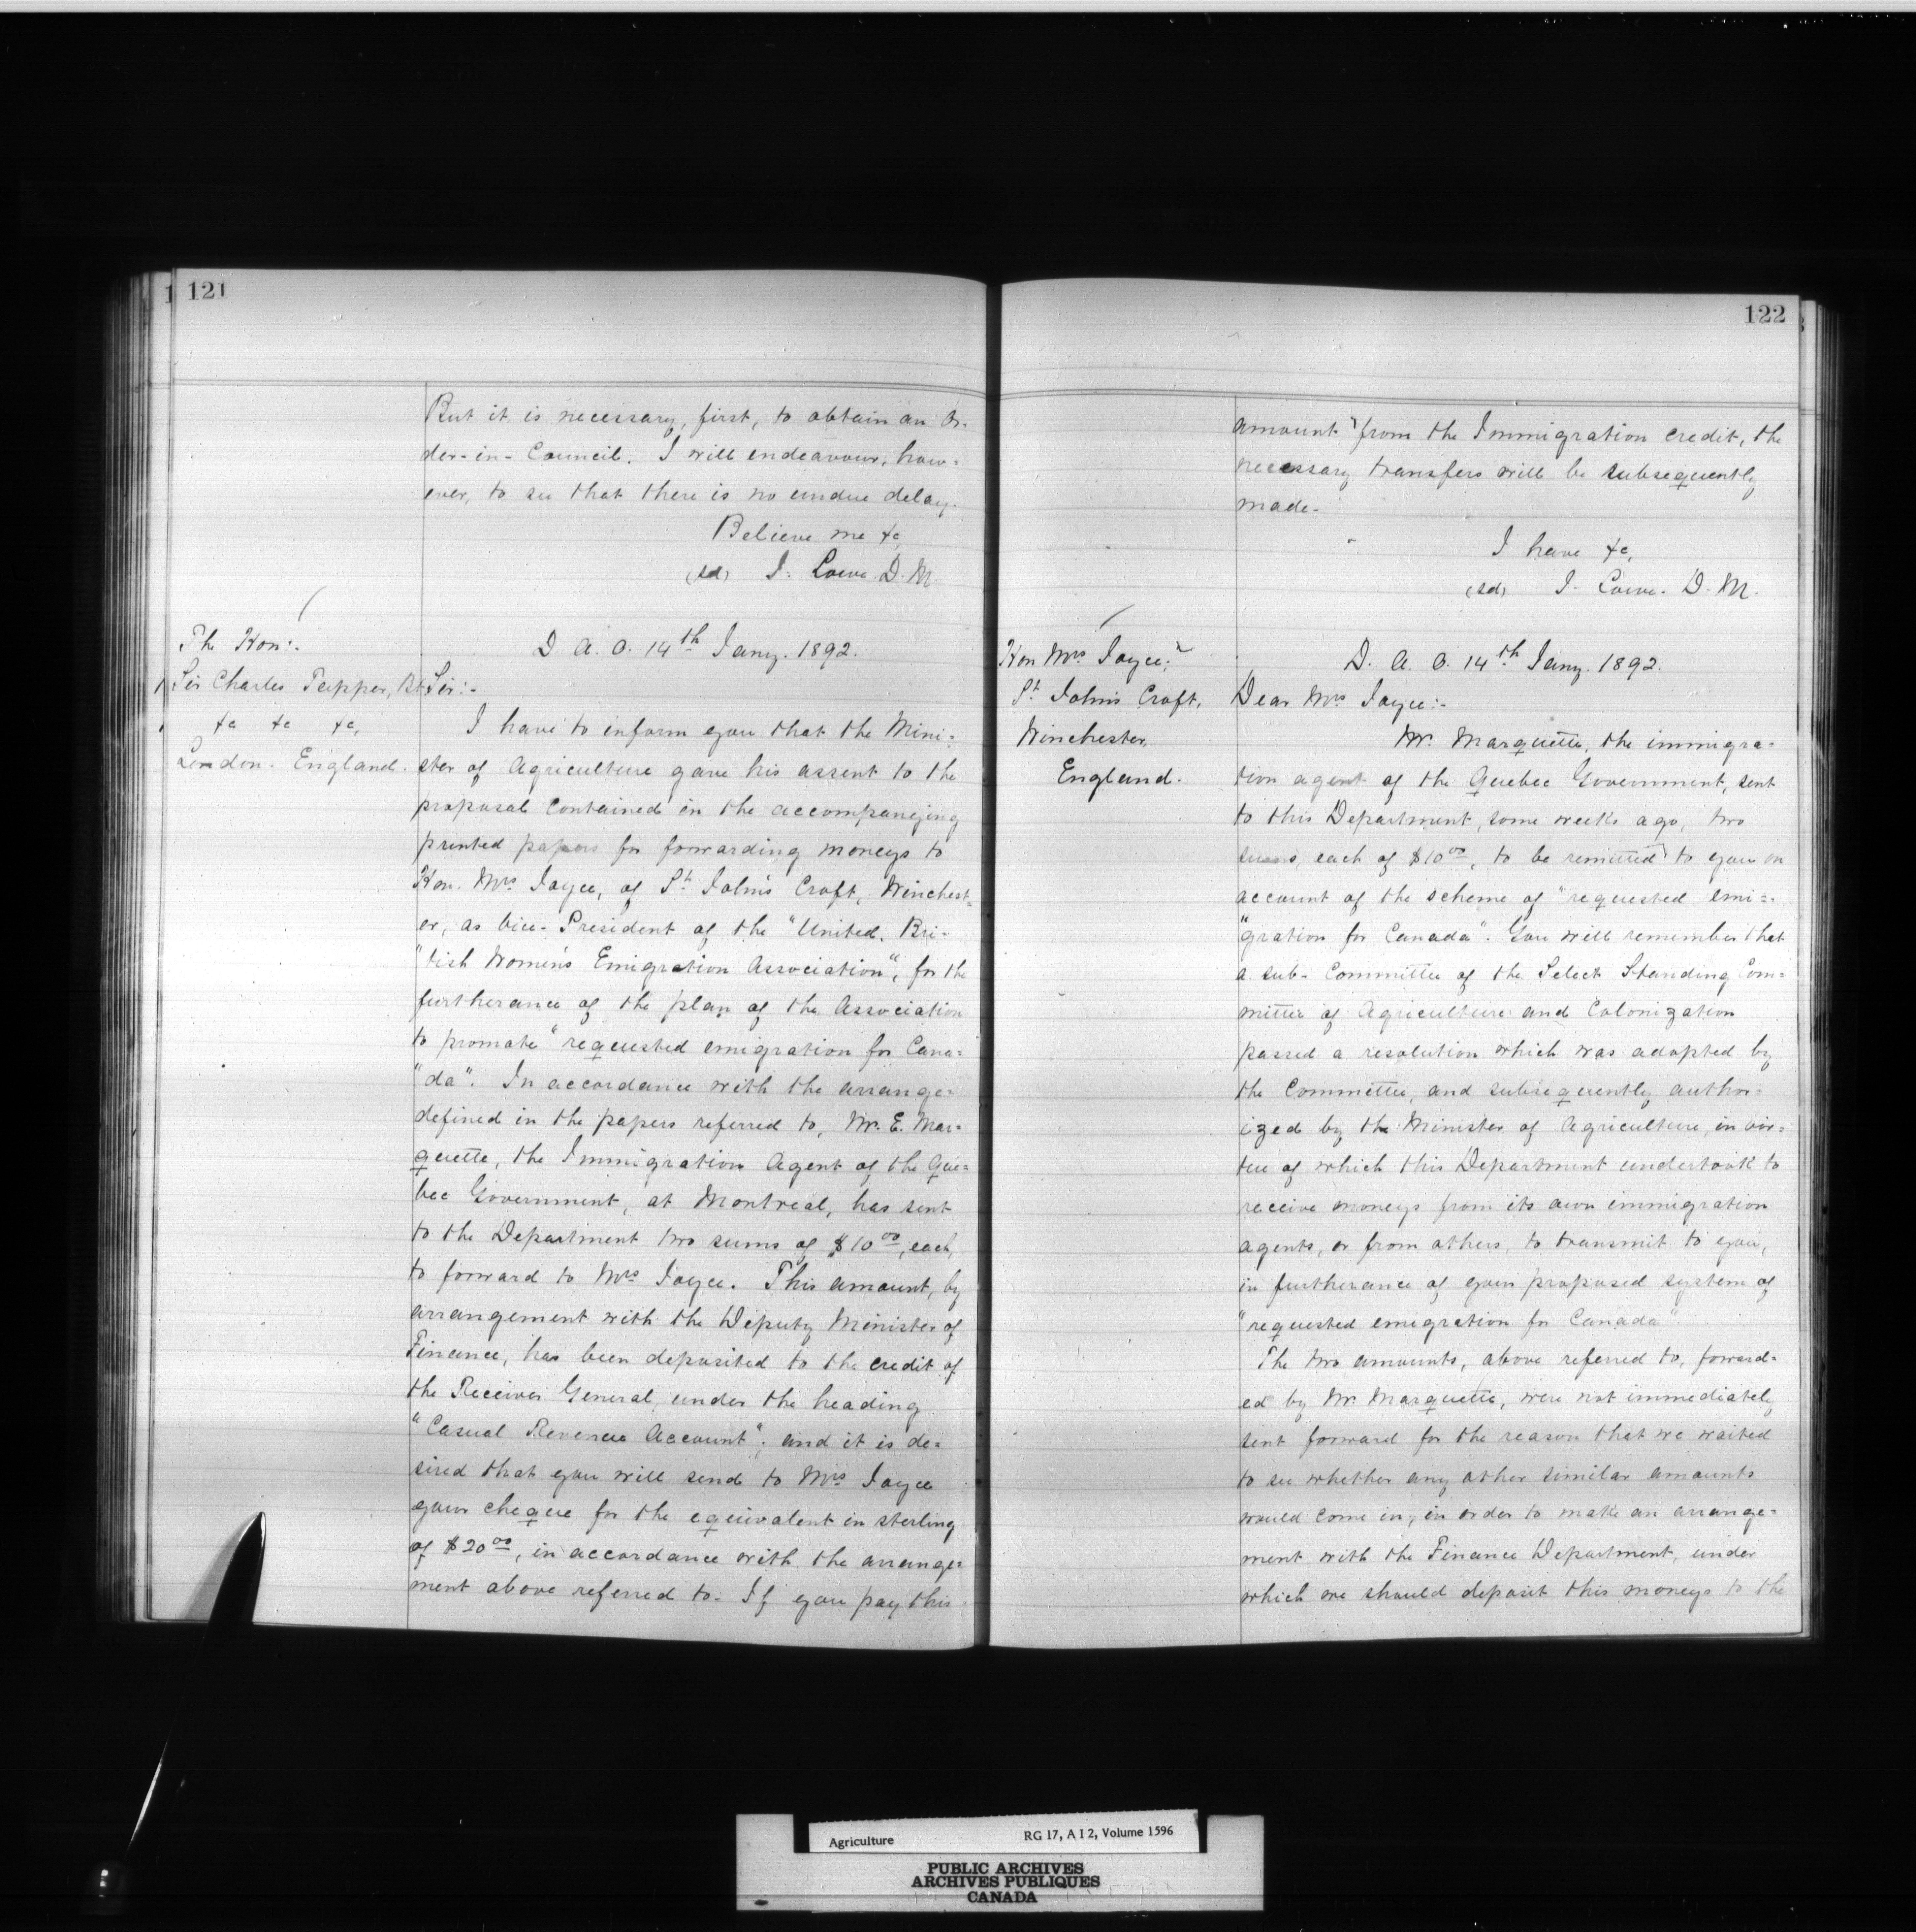 121
But it is necessary, first, to obtain an Or-
der-in-Council. I will endeavour, how=
ever, to see that there is no undue delay.
Believe me &c,
(sd) J. Lowe. D. M.
The Hon:.
Sir Charles Tupper, Bt
&c &c &c,
London - England.
D. A. O. 14th Jany. 1892.
Sir:-
I have to inform you that the Mini=
ster of Agriculture gave his assent to the
proposal contained in the accompanying
printed papers for forwarding moneys to
Hon. Mrs Joyce, of St. John's Croft, Winchest=
er, as Vice-President of the "United Bri-
"tish Women's Emigration Association", for the
furtherance of the plan of the Association
to promote "requested emigration for Cana=
"da". In accordance with the arrange=
defined in the papers referred to, Mr. E. Mar=
quette, the Immigration Agent of the Que=
bec Government, at Montreal, has sent
to the Department two sums of $10 00, each,
to forward to Mrs Joyce. This amount, by
arrangement with the Deputy Minister of
Finance, has been deposited to the credit of
the Receiver General, under the heading
"Casual Revenue Account"; and it is de=
sired that you will send to Mrs Joyce
your cheque for the equivalent in sterling
of $20 00, in accordance with the arrange=
ment above referred to. If you pay this
122
amount from the Immigration credit, the
necessary transfers will be subsequently
made.
I have &c,
(sd) J. Lowe. D. M.
Hon Mrs Joyce,
St. John's Croft,
Winchester,
England.
D. A. O. 14th Jany. 1892.
Dear Mrs Joyce:-
Mr. Marquette, the immigra=
tion agent of the Quebec Government, sent
to this Department, some weeks ago, two
sums, each of $10 00, to be remitted to you on
account of the scheme of "requested emi=
"gration for Canada". You will remember that
a sub-Committee of the Select Standing Com=
mittee of Agriculture and Colonization
passed a resolution which was adopted by
the Committee, and subsequently author=
ized by the Minister of Agriculture, in vir=
tue of which this Department undertook to
receive moneys from its own immigration
agents, or from others, to transmit to you,
in furtherance of your proposed system of
"requested emigration for Canada"
The two amounts, above referred to, forward=
ed by Mr. Marquette, were not immediately
sent forward for the reason that we waited
to see whether any other similar amounts
would come in, in order to make an arrange=
ment with the Finance Department, under
which we should deposit this moneys to the
Agriculture RG 17, A I 2, Volume 1596
PUBLIC ARCHIVES
ARCHIVES PUBLIQUES
CANADA